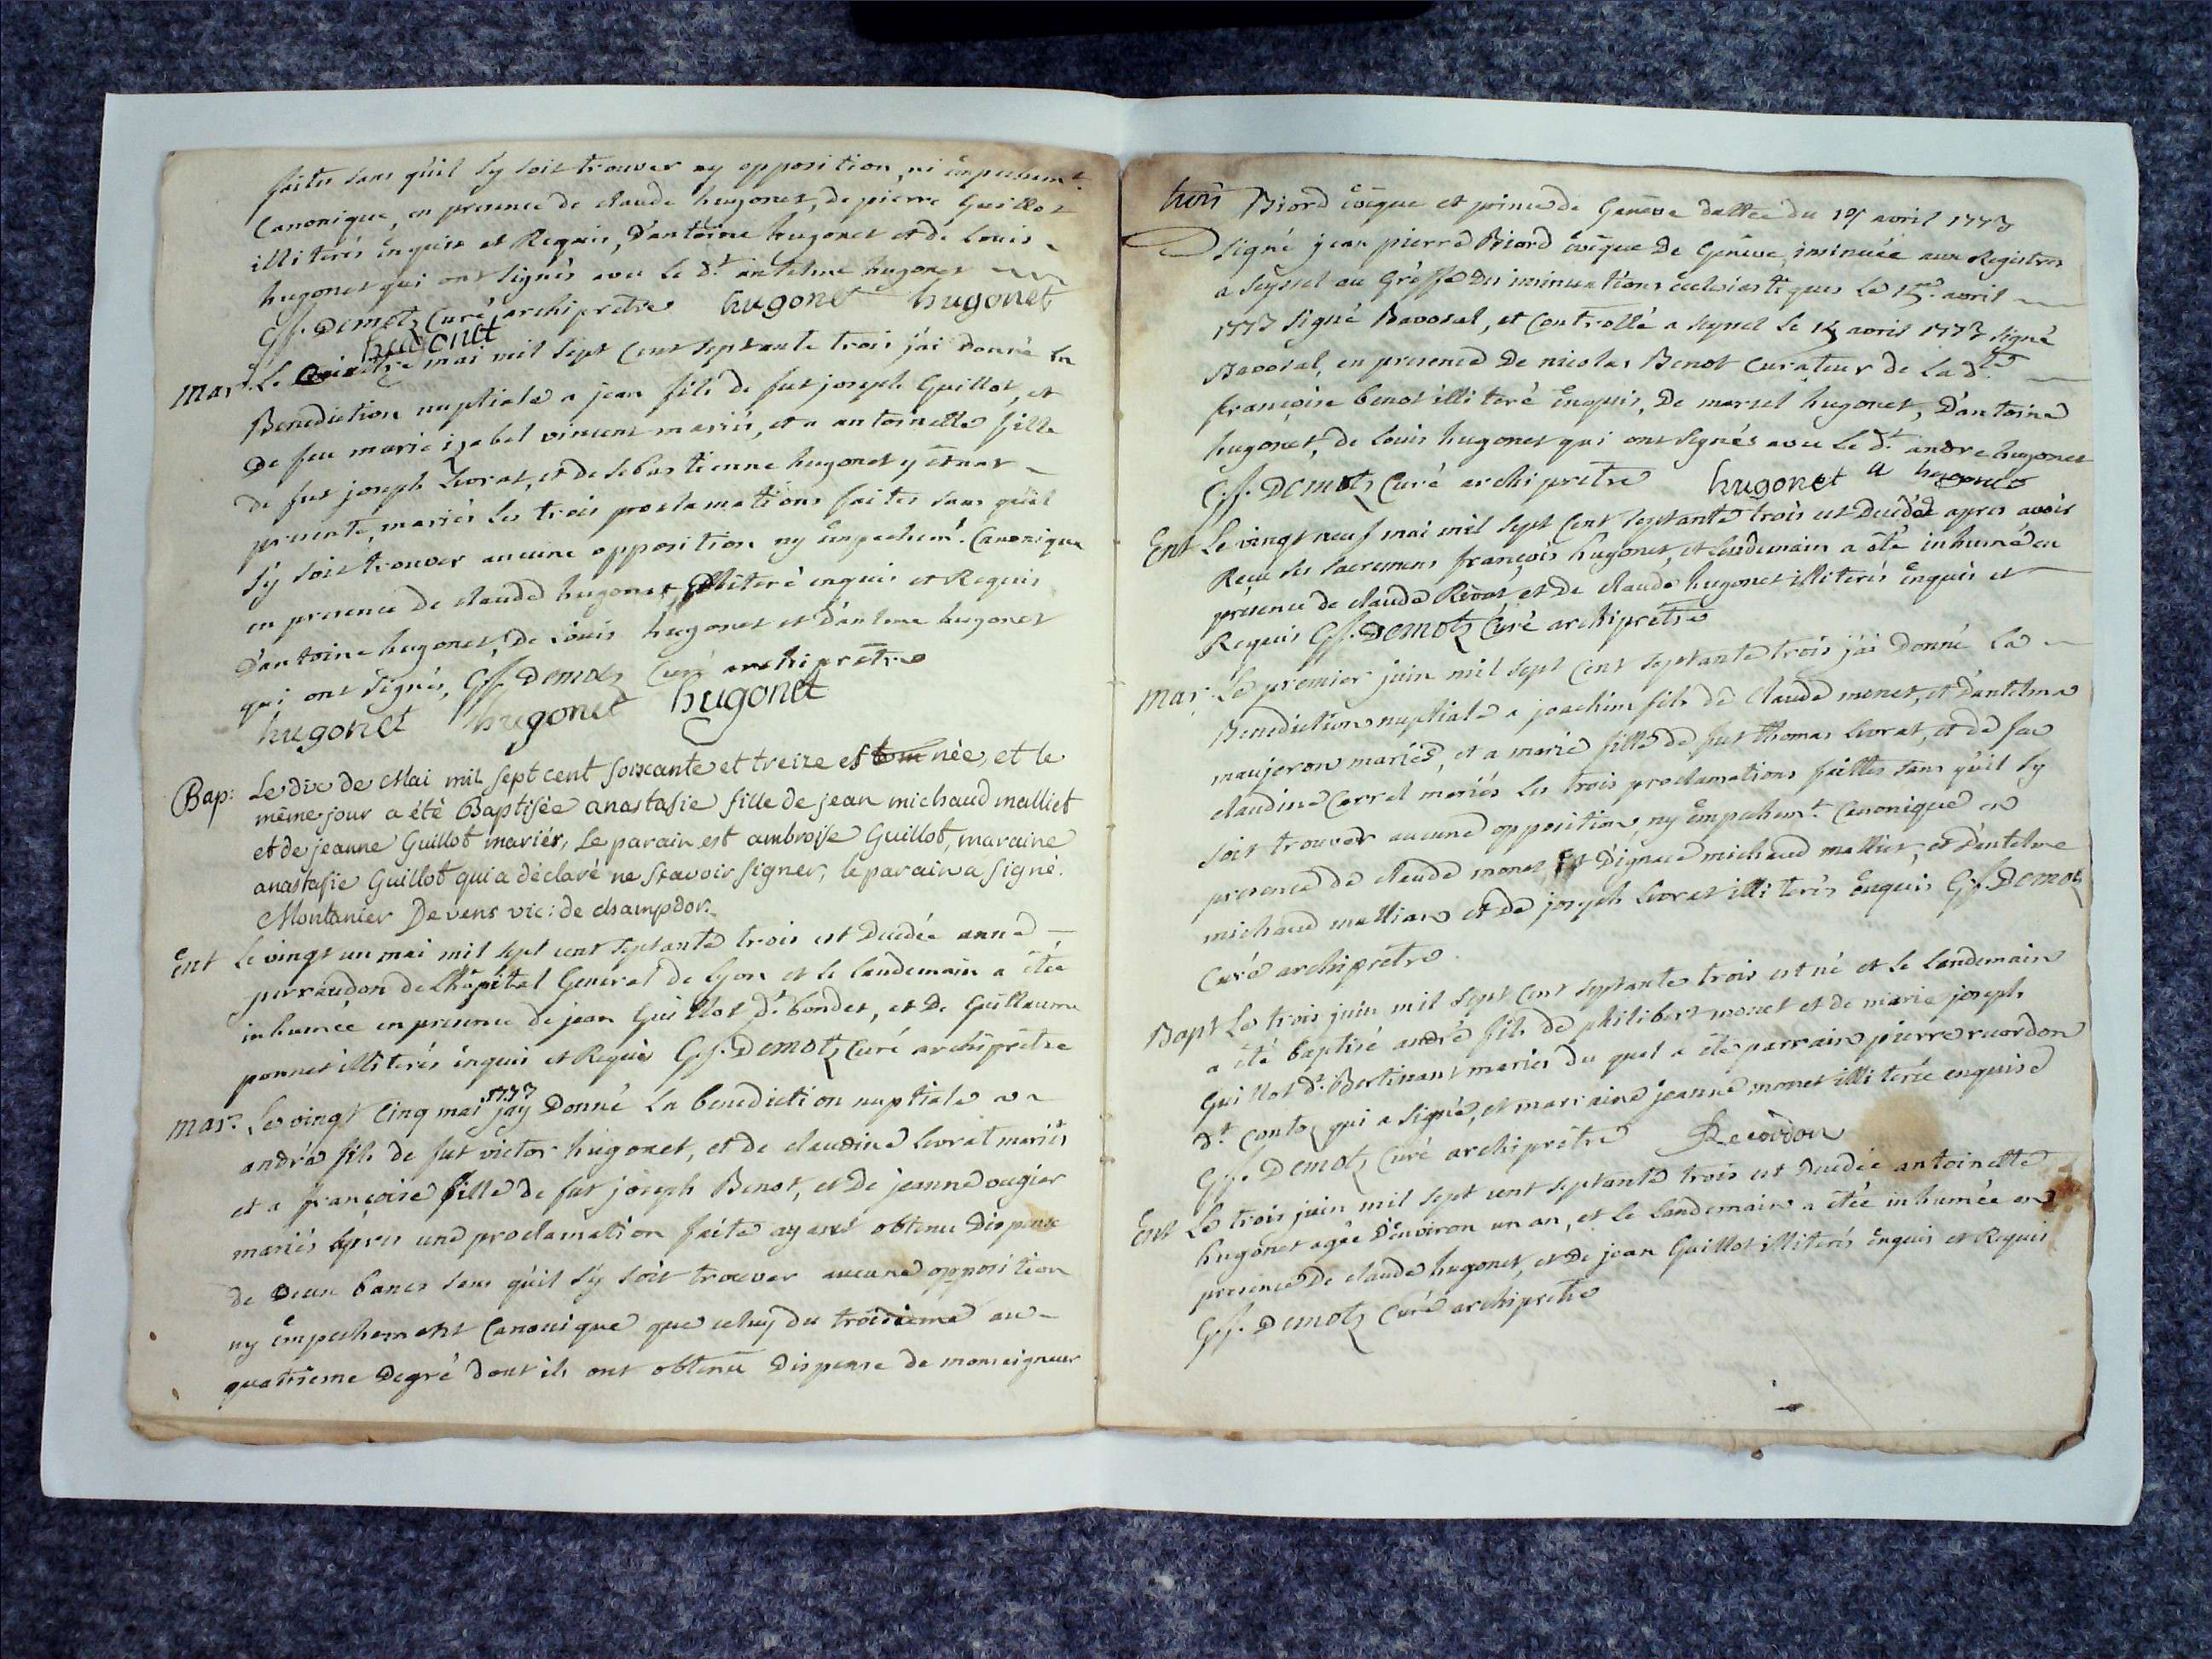 faites sans qu'il s'y soit trouver ny opposition, ni empechemt.
Canonique, en presence de claude hugonet, de pierre Guillot
illiterés enquis et Requis, d'antoine hugonet et de Louis
hugonet qui ont signés avec le dt. antelme hugonet
Gf. Demotz Curé archiprêtre hugonet hugonet
hugonet
Mar. Le mai mil sept cent septante trois j'ai donné la
Benediction nuptiale a jean fils de fut joseph Guillot, et
de feu marie izabel vincent mariés, et a antoinette fille
de fut joseph Livrat, et de sebastienne hugonet y étant
presente, mariés les trois proclamations faites sans qu'il
s'y soit trouver aucune opposition ny empechemt. Canonique
en presence de claude hugonet illiteré enquis et Requis
d'antoine hugonet, de Louis hugonet et d'anteme hugonet
qui ont signés, Gf. Demotz Curé archiprêtre
hugonet hugonet hugonet
Bap: Le dix de Mai mil sept cent soixante et treize est née, et le
même jour a été Baptisée anastasie fille de jean michaud malliet
et de jeanne Guillot mariés, Le parain est ambroise Guillot, maraine
anastasie Guillot qui a déclaré ne sçavoir signer, le parain a signé.
Montanier Devens vic: de champdor.
Ent Le vingt un mai mil sept cent septante trois est decedée anne
perraudon de Lhôpital General de Lyon et le landemain a étée
inhumée en presence de jean Guillot dt. bondet, et de Guillaume
ponnet illiterés enquis et Requis Gf. Demotz Curé archiprêtre
mar. Le vingt Cinq mai 1773 j'ay Donné la benediction nuptiale a
andré fils de fut victor hugonet, et de claudine Livrat mariés
et a françoise fille de fut joseph Benot, et de jeanne ougier
mariés après une proclamation faite ayant obtenu Dispense
de Deux bancs sans qu'il s'y soit trouver aucune opposition
ny empechement Canonique que celuy du troisieme au
quatrieme Degré dont ils ont obtenu Dispense de monseigneur
Biord évêque et prince de Genève dattée du avril 1773
Signé jean pierre Biord évêque De Genève, insinuée aux Registres
a Seyssel au Greffe des insinuations ecclesiastiques Le avril
1773 Signé Bavoral, et Controllé a Seyssel le avril 1773 signé
Bavoral, en presence De nicolas Benot curateur de la dte
françoise benot illiteré enquis, De marsel hugonet, D'antoine
hugonet, de Louis hugonet qui ont signés avec le dt. andre hugonet
Gf. Demotz Curé archiprêtre hugonet a hugonet
Ent Le vingt neuf mai mil sept Cent septante trois est Decédé apres avoir
Reçu ses sacremens françois hugonet, et lendemain a été inhumé en
presence de claude Livrat et De claude hugonet illiterés enquis et
Requis Gf. Demotz Curé archiprêtre
Mar. Le premier juin mil sept Cent septante trois j'ai Donné la
Benediction nuptiale a joachim fils de Claude monet, et d'antelme
maujeron mariés, et a marie fille de fut thomas Livrat, et de fue
claudine Carrel mariés les trois proclamations faittes sans qu'il s'y
soit trouver aucune opposition ny empechemt. Canonique en
presence de claude monet, et d'ignace michaud malliet, et d'antelme
michaud mallian et de joseph Livrat illiterés enquis Gf. Demotz
Curé archiprêtre.
Bapt Le trois juin mil sept Cent septante trois est né et le landemain
a été baptisé andré fils de philibert monet et de marie joseph
Guillot dt. Bertinant mariés du quel a été parrain pierre ruordon
dt. Contoz qui a signé, et marraine jeanne monet illiterée enquise
Gf. Demotz Curé archiprêtre Recordon
Ent Le trois juin mil sept cent septante trois est decedée antoinette
hugonet agée D'environ un an, et le landemain a étée inhumée en
presence De claude hugonet, et De jean Guillot illiterés enquis et Requis
Gf. Demotz Curé archiprêtre